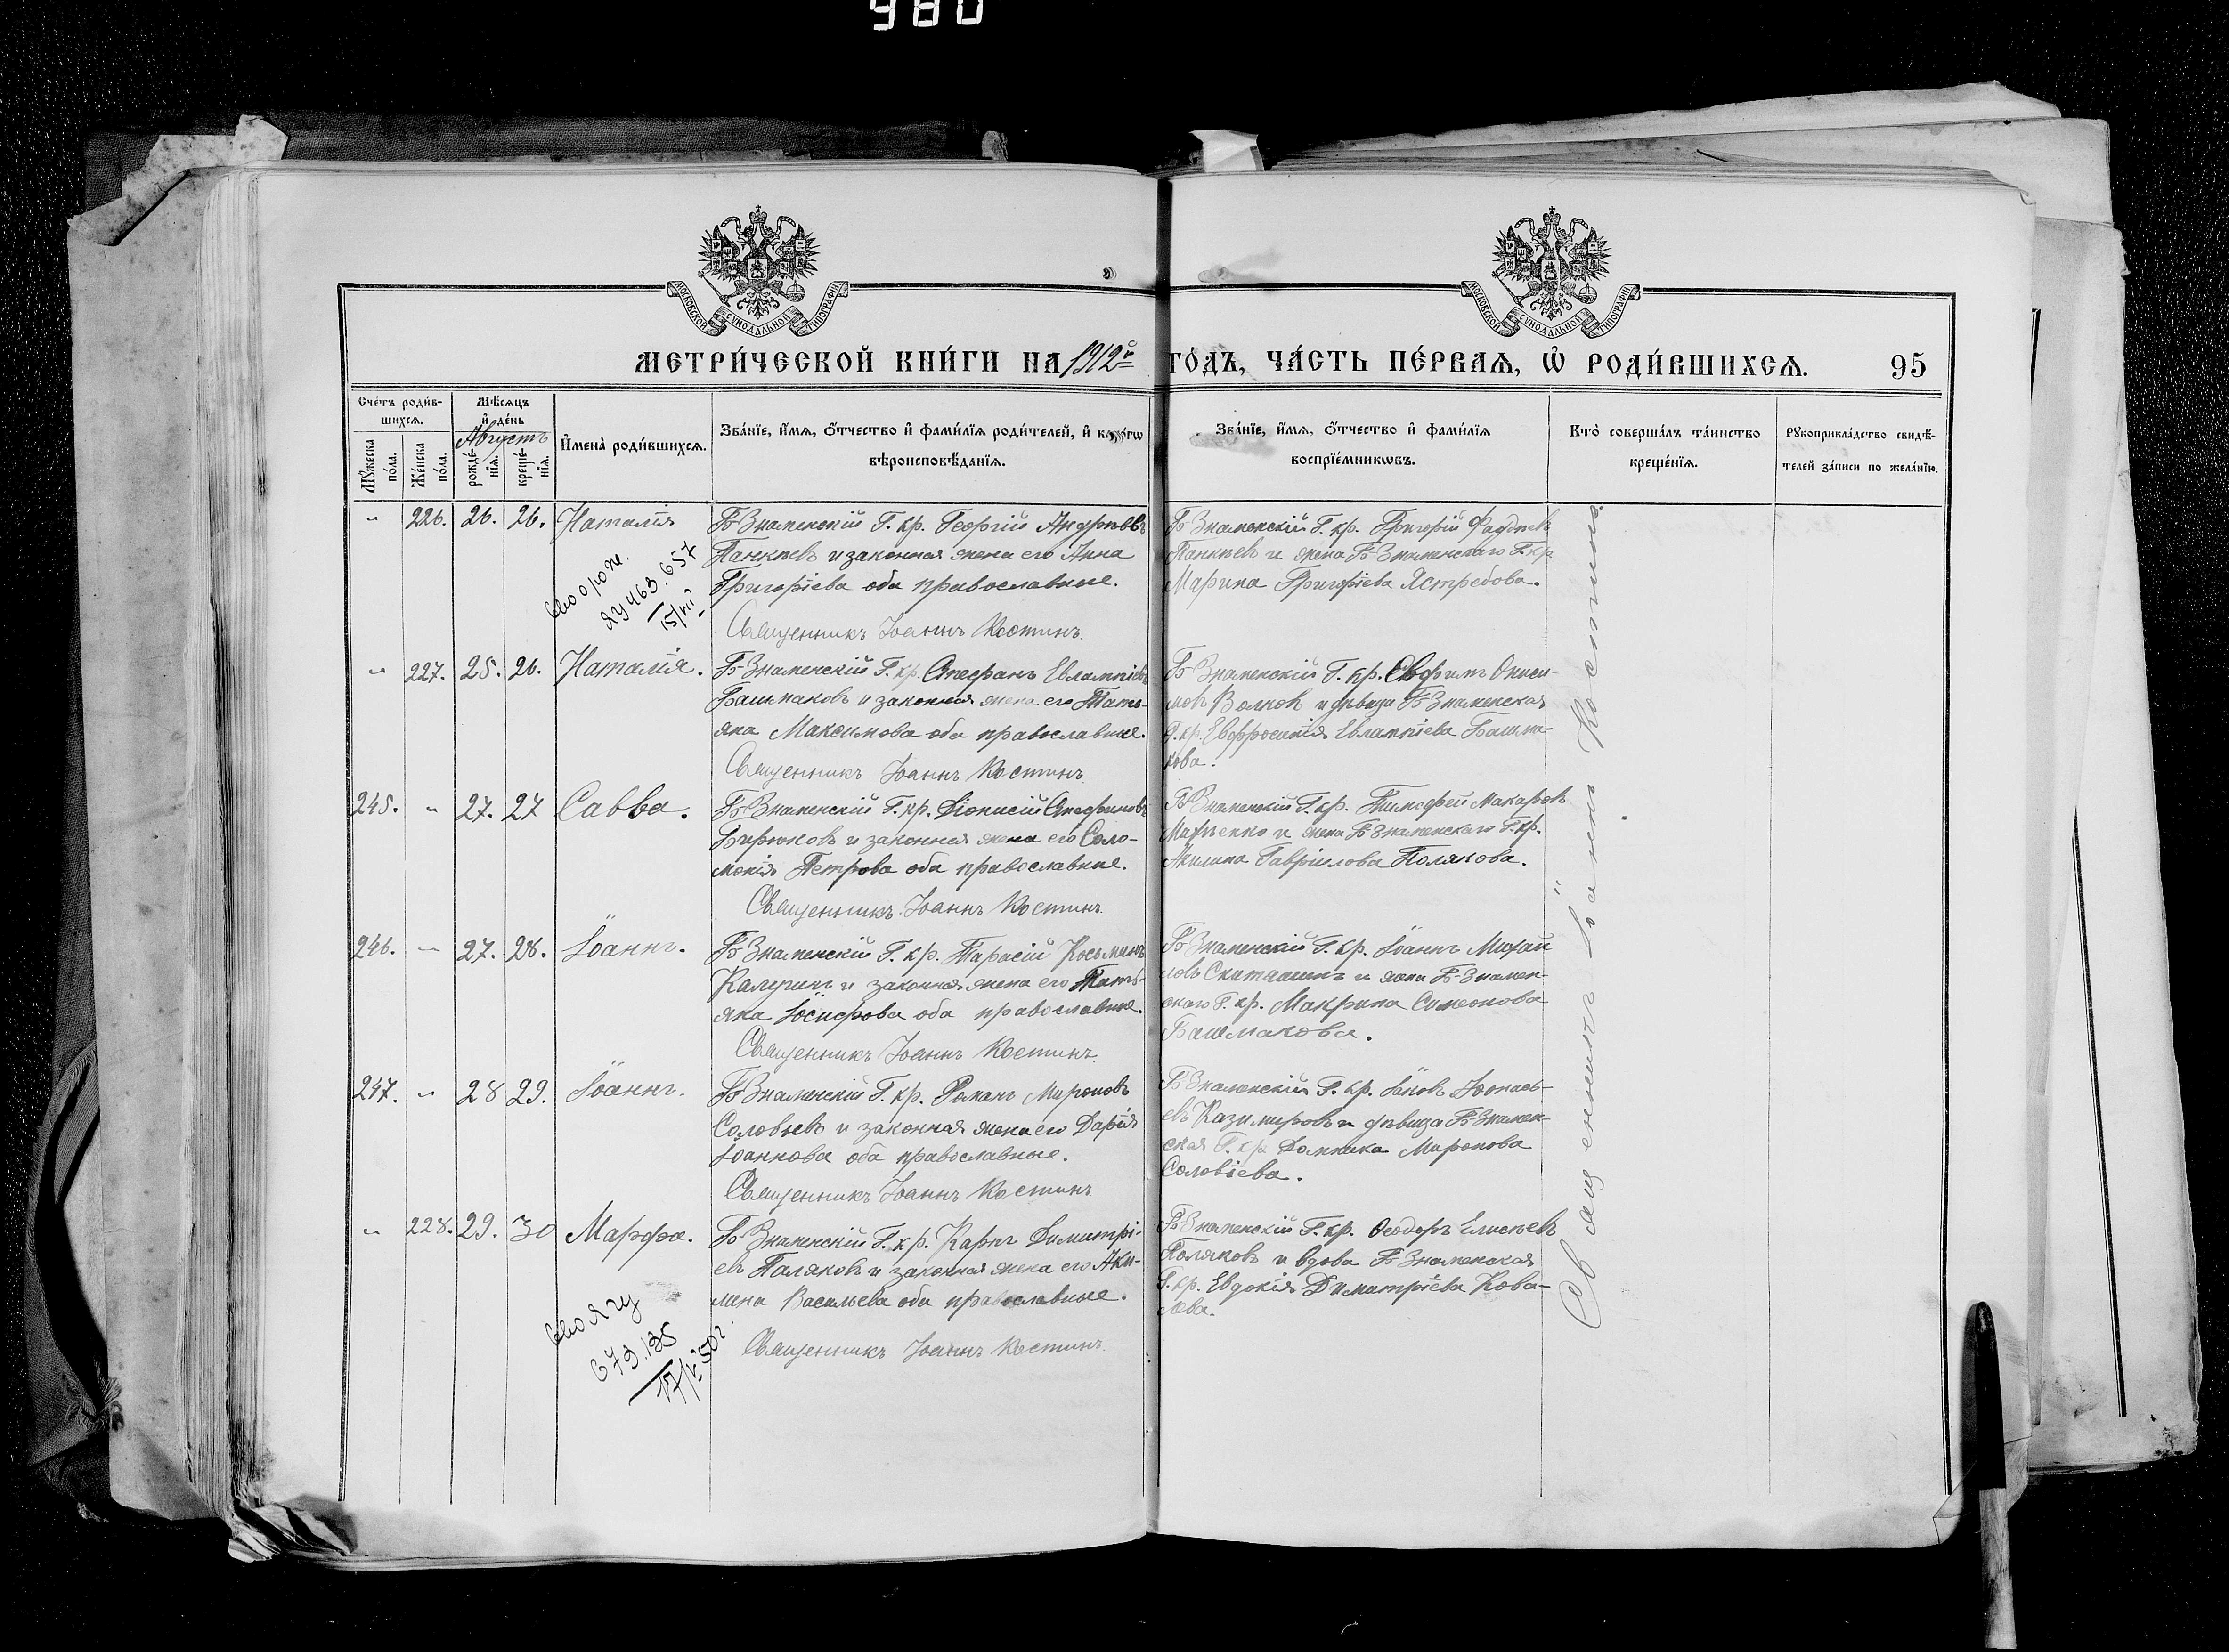 980
МОСКОВСКОЙ СѴНОДАЛЬНОЙ ТИПОГРАФІИ
МОСКОВСКОЙ СѴНОДАЛЬНОЙ ТИПОГРАФІИ
МЕТРИ́ЧЕСКОЙ КНИ́ГИ НА 1912й ГО́ДЪ, ЧА́СТЬ ПЕ́РВАѦ, Ѡ҆ РОДИ́ВШИХСѦ. 95
Сче́тъ роди́в-
шихсѧ.
Мꙋ́жеска по́ла.
Же́нска по́ла.
Мѣ́сѧцъ
и҆ де́нь
Августъ
рожде́-
нїѧ.
креще́-
нїѧ.
И҆мена̀ роди́вшихсѧ.
Зва́нїе, и҆́мѧ, ѻ҆́тчество и҆ фами́лїѧ роди́телей, и҆
вѣроисповѣ́данїѧ.
Зва́нїе, и҆́мѧ, ѻ҆́тчество и҆ фами́лїѧ
воспрїе́мникѡвъ.
Кто̀ соверша́лъ та́инство
креще́нїѧ.
Рꙋкоприкла́дство свидѣ́-
телей за́писи по жела́нїю.
" 226. 26. 26. Наталія
Б Знаменскій Г. кр. Георгій Андреевъ
Панкѣевъ и законная жена его Анна
Григоріева оба православные.
Священникъ Іоаннъ Костинъ.
Б Знаменскій Г. кр. Григорій Фаддѣевъ
Панкѣевъ и жена Б-Знаменскаго Г. кр
Марина Григоріева Ястребова.
463.657
15/VII
" 227. 25. 26. Наталія.
Б-Знаменскій Г. кр. Стефанъ Евлампіевъ
Башмаковъ и законная жена его Тать-
яна Максимова оба православные.
Священникъ Іоаннъ Костинъ.
Б Знаменскій Г. кр. Евфимъ Ониси-
мовъ Волковъ и дѣвица Б Знаменская
Г. кр. Евфросинія Евлампіева Башма-
кова.
245. " 27. 27 Савва.
Б-Знаменскій Г. кр. Діонисій Стефановъ
Бирюковъ и законная жена его Соло-
монія Петрова оба православные.
Священникъ Іоаннъ Костинъ.
Б Знаменскій Г. кр. Тимофей Макаровъ
и жена Б Знаменскаго Г. кр.
Акилина Гавріилова Полякова.
246. " 27. 28. Іоаннъ.
Б Знаменскій Г. кр. Тарасій Косьминъ
Калугинъ и законная жена его Тать-
яна Іосифова оба православные.
Священникъ Іоаннъ Костинъ.
Б Знаменскій Г. кр. Іоаннъ Михай
ловъ и жена Б-Знамен-
скаго Г. кр. Макрина Симеонова
Башмакова.
247. " 28 29. Іоаннъ.
Б Знаменскій Г. кр. Романъ Мироновъ
Соловьевъ и законная жена его Дарія
Іоаннова оба православные.
Священникъ Іоаннъ Костинъ
Б Знаменскій Г. кр. Іаковъ
евъ Казимировъ и дѣвица Б Знамен-
ская Г. кр Домника Миронова
Соловіева.
" 228. 29. 30 Марфа.
Б Знаменскій Г. кр. Карпъ Димитрі-
евъ Поляковъ и законная жена его Аки-
лина Васильева оба православные.
Священникъ Іоаннъ Костинъ.
Б Знаменскій Г. кр. Ѳеодоръ Елисѣевъ
Поляковъ и вдова Б Знаменская
Г. кр. Евдокія Димитріева Кова-
лева.
679.185
Священникъ Іоаннъ Костинъ